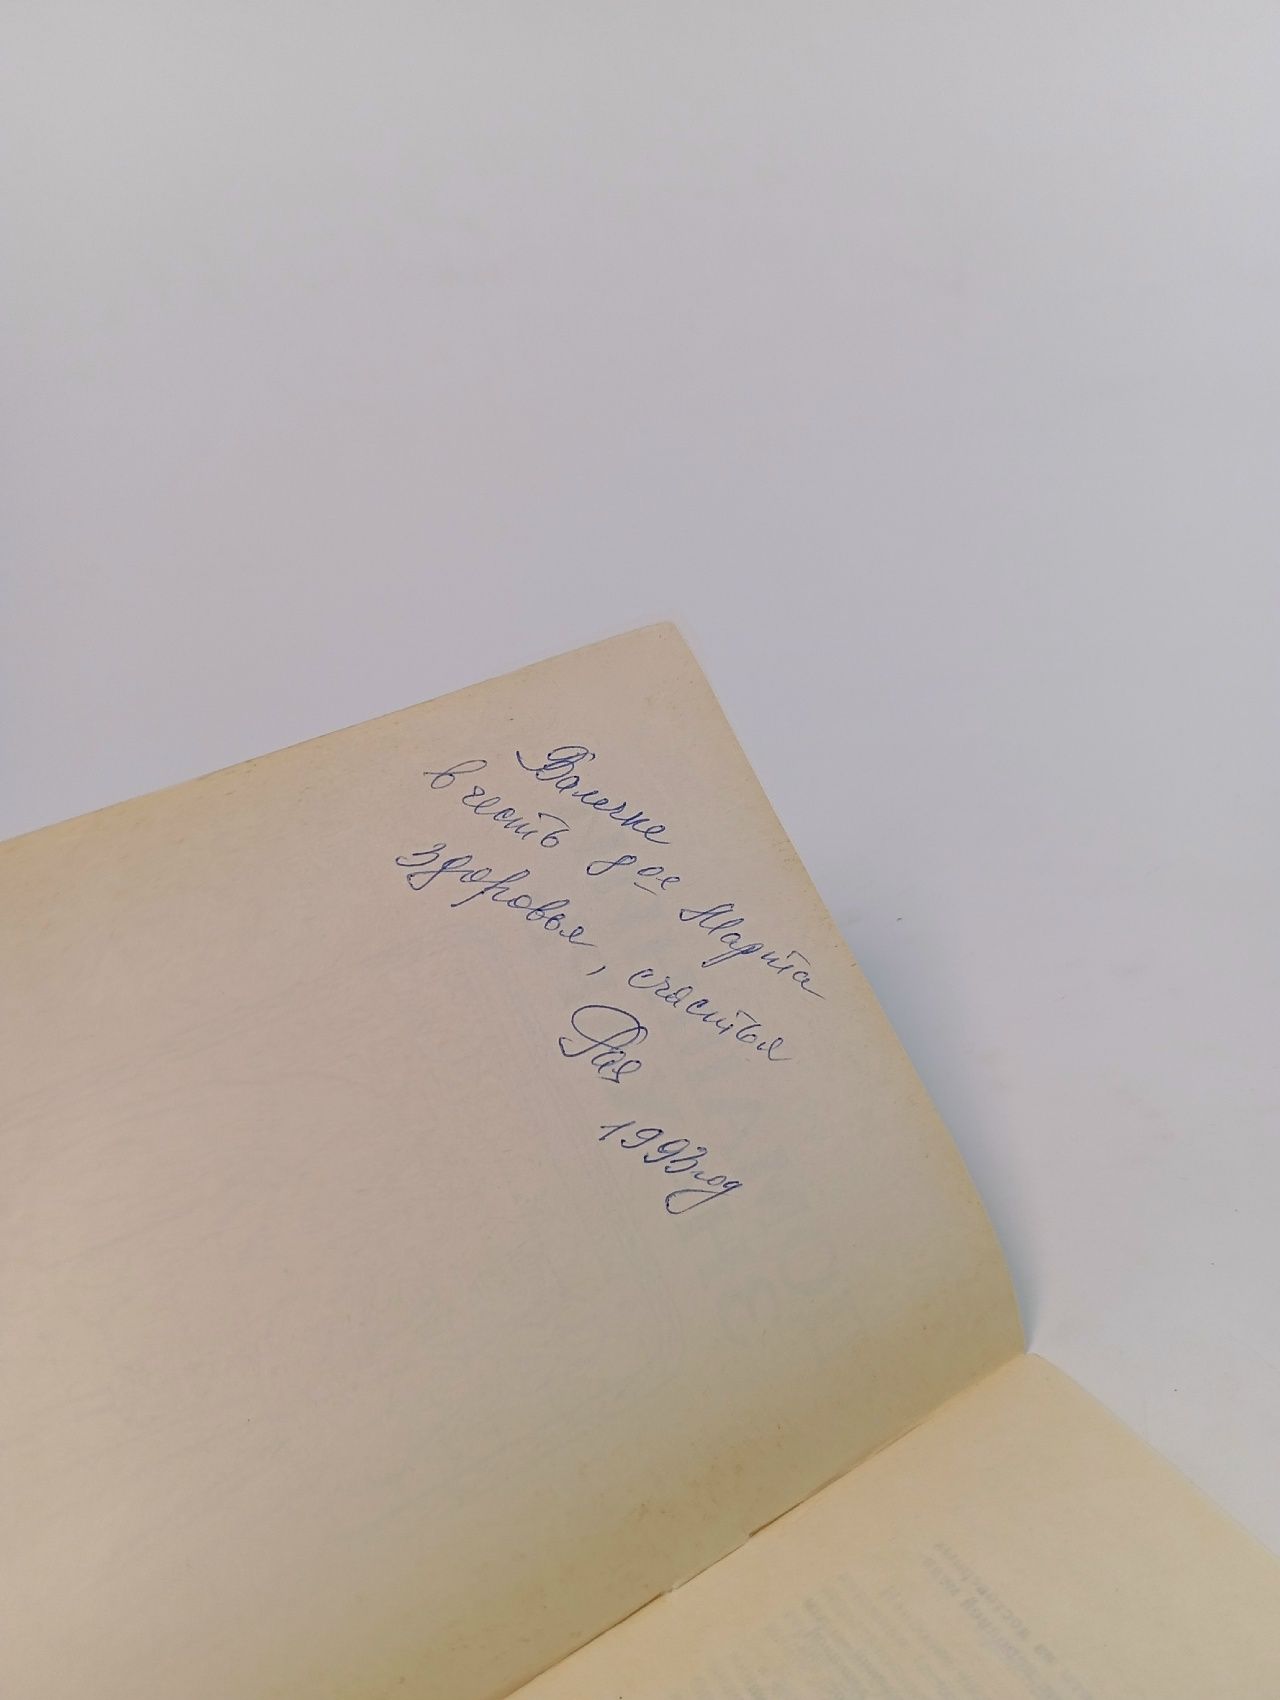 Валечке
в честь 8ое Марта
Здоровья, счастья
Рая
1993год